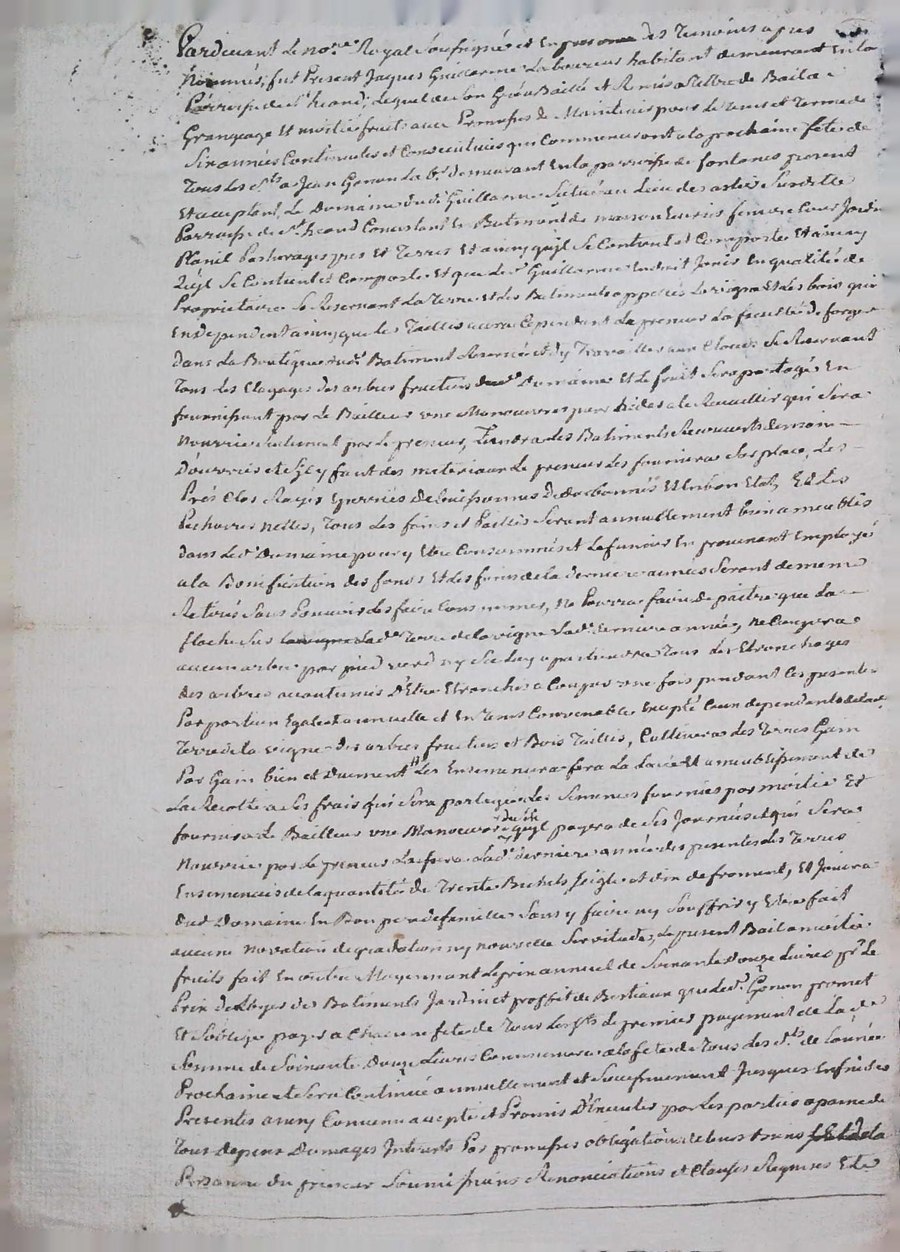 Pardevant Le no.re Royal Soussigné et En presence des Temoins apres
Nommés, fut Present Jaques Guillarme Laboureur habitant demeurant En la
Parroisse de S.t heand, Lequel de son Gré a Baillé et Remis a Tiltre de Bail a
Grangeage Et moitié fruits aux Promesses de Maintenir pour Le Tems et Terme de
Six années Continuelles et Consecutives qui Commenceront a la prochaine fete de
Tous Les S.ts a Jean Gonon La.br demeurant En la parroisse de fontanes present
Et acceptant, Le Domaine du d.t Guillarme Situé au Lieu de Susditte
Parroisse de S.t heand Consistant En Batiment de maison Ecuries feniere Cour Jardin
Planil Pasturages prés Et Terres Et ainsy quil Se Contient et Comporte Et ainsy
quil Se Contient et Comporte Et que Le d.t Guillarme En doit Jouir En qualité de
Proprietaire Se Reservant La Terre Et Les Batiments appellés La vigne Et Les bois qui
En dependent ainsy que les Tailles aura Cependant Le preneur La faculté de forger
Dans La Boutique du d.t Batiment Reservé et d'y Travailler aux Cloux Se Reservant
Tous Les Elagages des arbres fruitiers dud. Domaine Et Le fruit Sera partagé En
fournissant par Le Bailleur une Manoeuvre pour aider a le Recueillir qui Sera
Nourrie Seulement par Le preneur, Tiendra Les Batiments Recouverts de main
D'ouvrier et S'il y faut des materiaux Le preneur Les fournira Sur place, Les
Prés Clos Rasés Epierrés de buissonnés Et En bon Etat, Et Les
Pecheires nettes, Tous Les foins et Pailles Seront annuellement bien ameublés
dans Le d.t Domaine pour y Etre Consommés et Le fumier En provenant Employé
a La Bonification des fonds Et Les foins de la derniere année Seront de meme
Retirés Sans Pouvoir Les faire Consommer, Ne Pourra faire De paitre que La
flache Sur Lad.e Terre de La vigne Lad.e derniere année, Ne Coupera
aucun arbre par pied verd ny Sec Luy apartiendra Tous Les Etronchages
des arbres accoutumés D'Etre Etronchés a Couper une fois pendant Ces presentes
Par portion Egale annuelle et En Tems Convenable Excepté Ceux dependants de Lad.e
Terre de La vigne des arbres fruitiers et Bois Taillis, Cultivera Les Terres Gain
Par Gain bien et Duement Les Ensemencera fera La Levée Et ameublissement de
La Recolte a Ses frais qui Sera partagée Les Semences fournies par moitié Et
fournira Le Bailleur une Manoeuvre qu'il payera de Ses Journées et qui Sera
Nourrie par Le preneur Laissera Lad.e derniere année des presentes Les Terres
Ensemencées de la quantité de Trente Bichets Seigle et de froment, Et Jouira
Dud. Domaine En Bon pere de famille Sans y faire ny Souffrir y Etre fait
aucune Novation degradation ny nouvelle Servitude, Le present Bail a moitié
fruits fait En outre Moyennant Le prix annuel de Soixante Douze Livres p.r Le
Prix des Batiments Jardin et proffit de Bestiaux que Led.t Gonon promet
Et S'oblige payer a Chacune fete de Tous Les S.ts Le premier payement de La d.e
Somme de Soixante Douze Livres Commencera a La fete de Tous Les S.ts de L'année
Prochaine et Sera Continué annuellement et Successivement Jusques En fin des
Presentes ainsy Convenu accepté et Promis D'Executer par Les parties a peine de
Tous Depens Dommages Interets Par promesses obligations de Leurs biens
Personne du preneur Soumissions Renonciations et Clauses Requises Et de